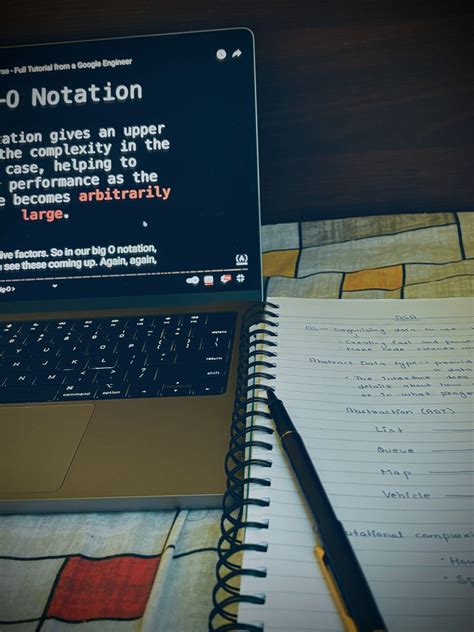 rse - Full Tutorial from a Google Engineer
-O Notation
ation gives an upper
the complexity in the
case, helping to
performance as the
e becomes arbitrarily
large.
ive factors. So in our big O notation,
see these coming up. Again, again,
delete
return
shift
command
option
DSA
DS - Organising data to use
Creating fast and
Make code cleaner
Abstract Data type :
a data
The interface does
details about how
or in what
Abstraction (ADT)
List
Queue
Map
Vehicle
utational complex
How